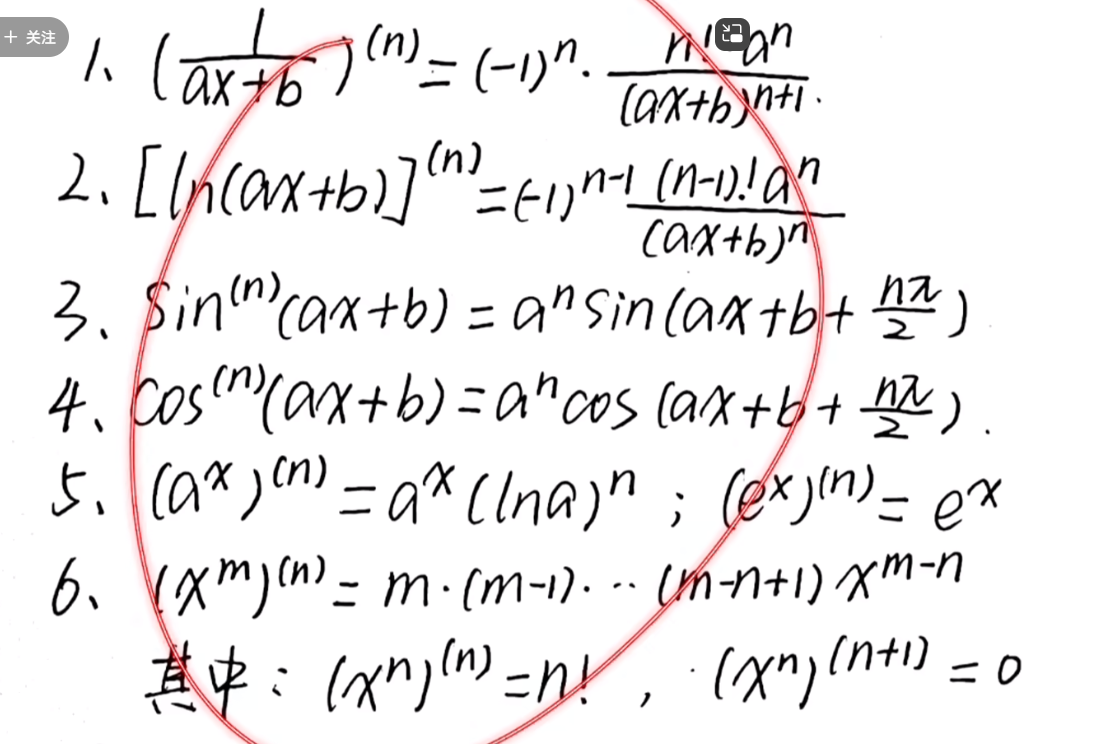 + 关注
1、(1/(ax+b))^(n) = (-1)^n · n! a^n/(ax+b)^(n+1).
2、[ln(ax+b)]^(n) = (-1)^(n-1) (n-1)! a^n/(ax+b)^n
3、sin^(n)(ax+b) = a^n sin(ax+b+nπ/2)
4、cos^(n)(ax+b) = a^n cos(ax+b+nπ/2).
5、(a^x)^(n) = a^x (lna)^n ; (e^x)^(n) = e^x
6、(x^m)^(n) = m·(m-1)·…(m-n+1) x^(m-n)
其中：(x^n)^(n) = n! , (x^n)^(n+1) = 0